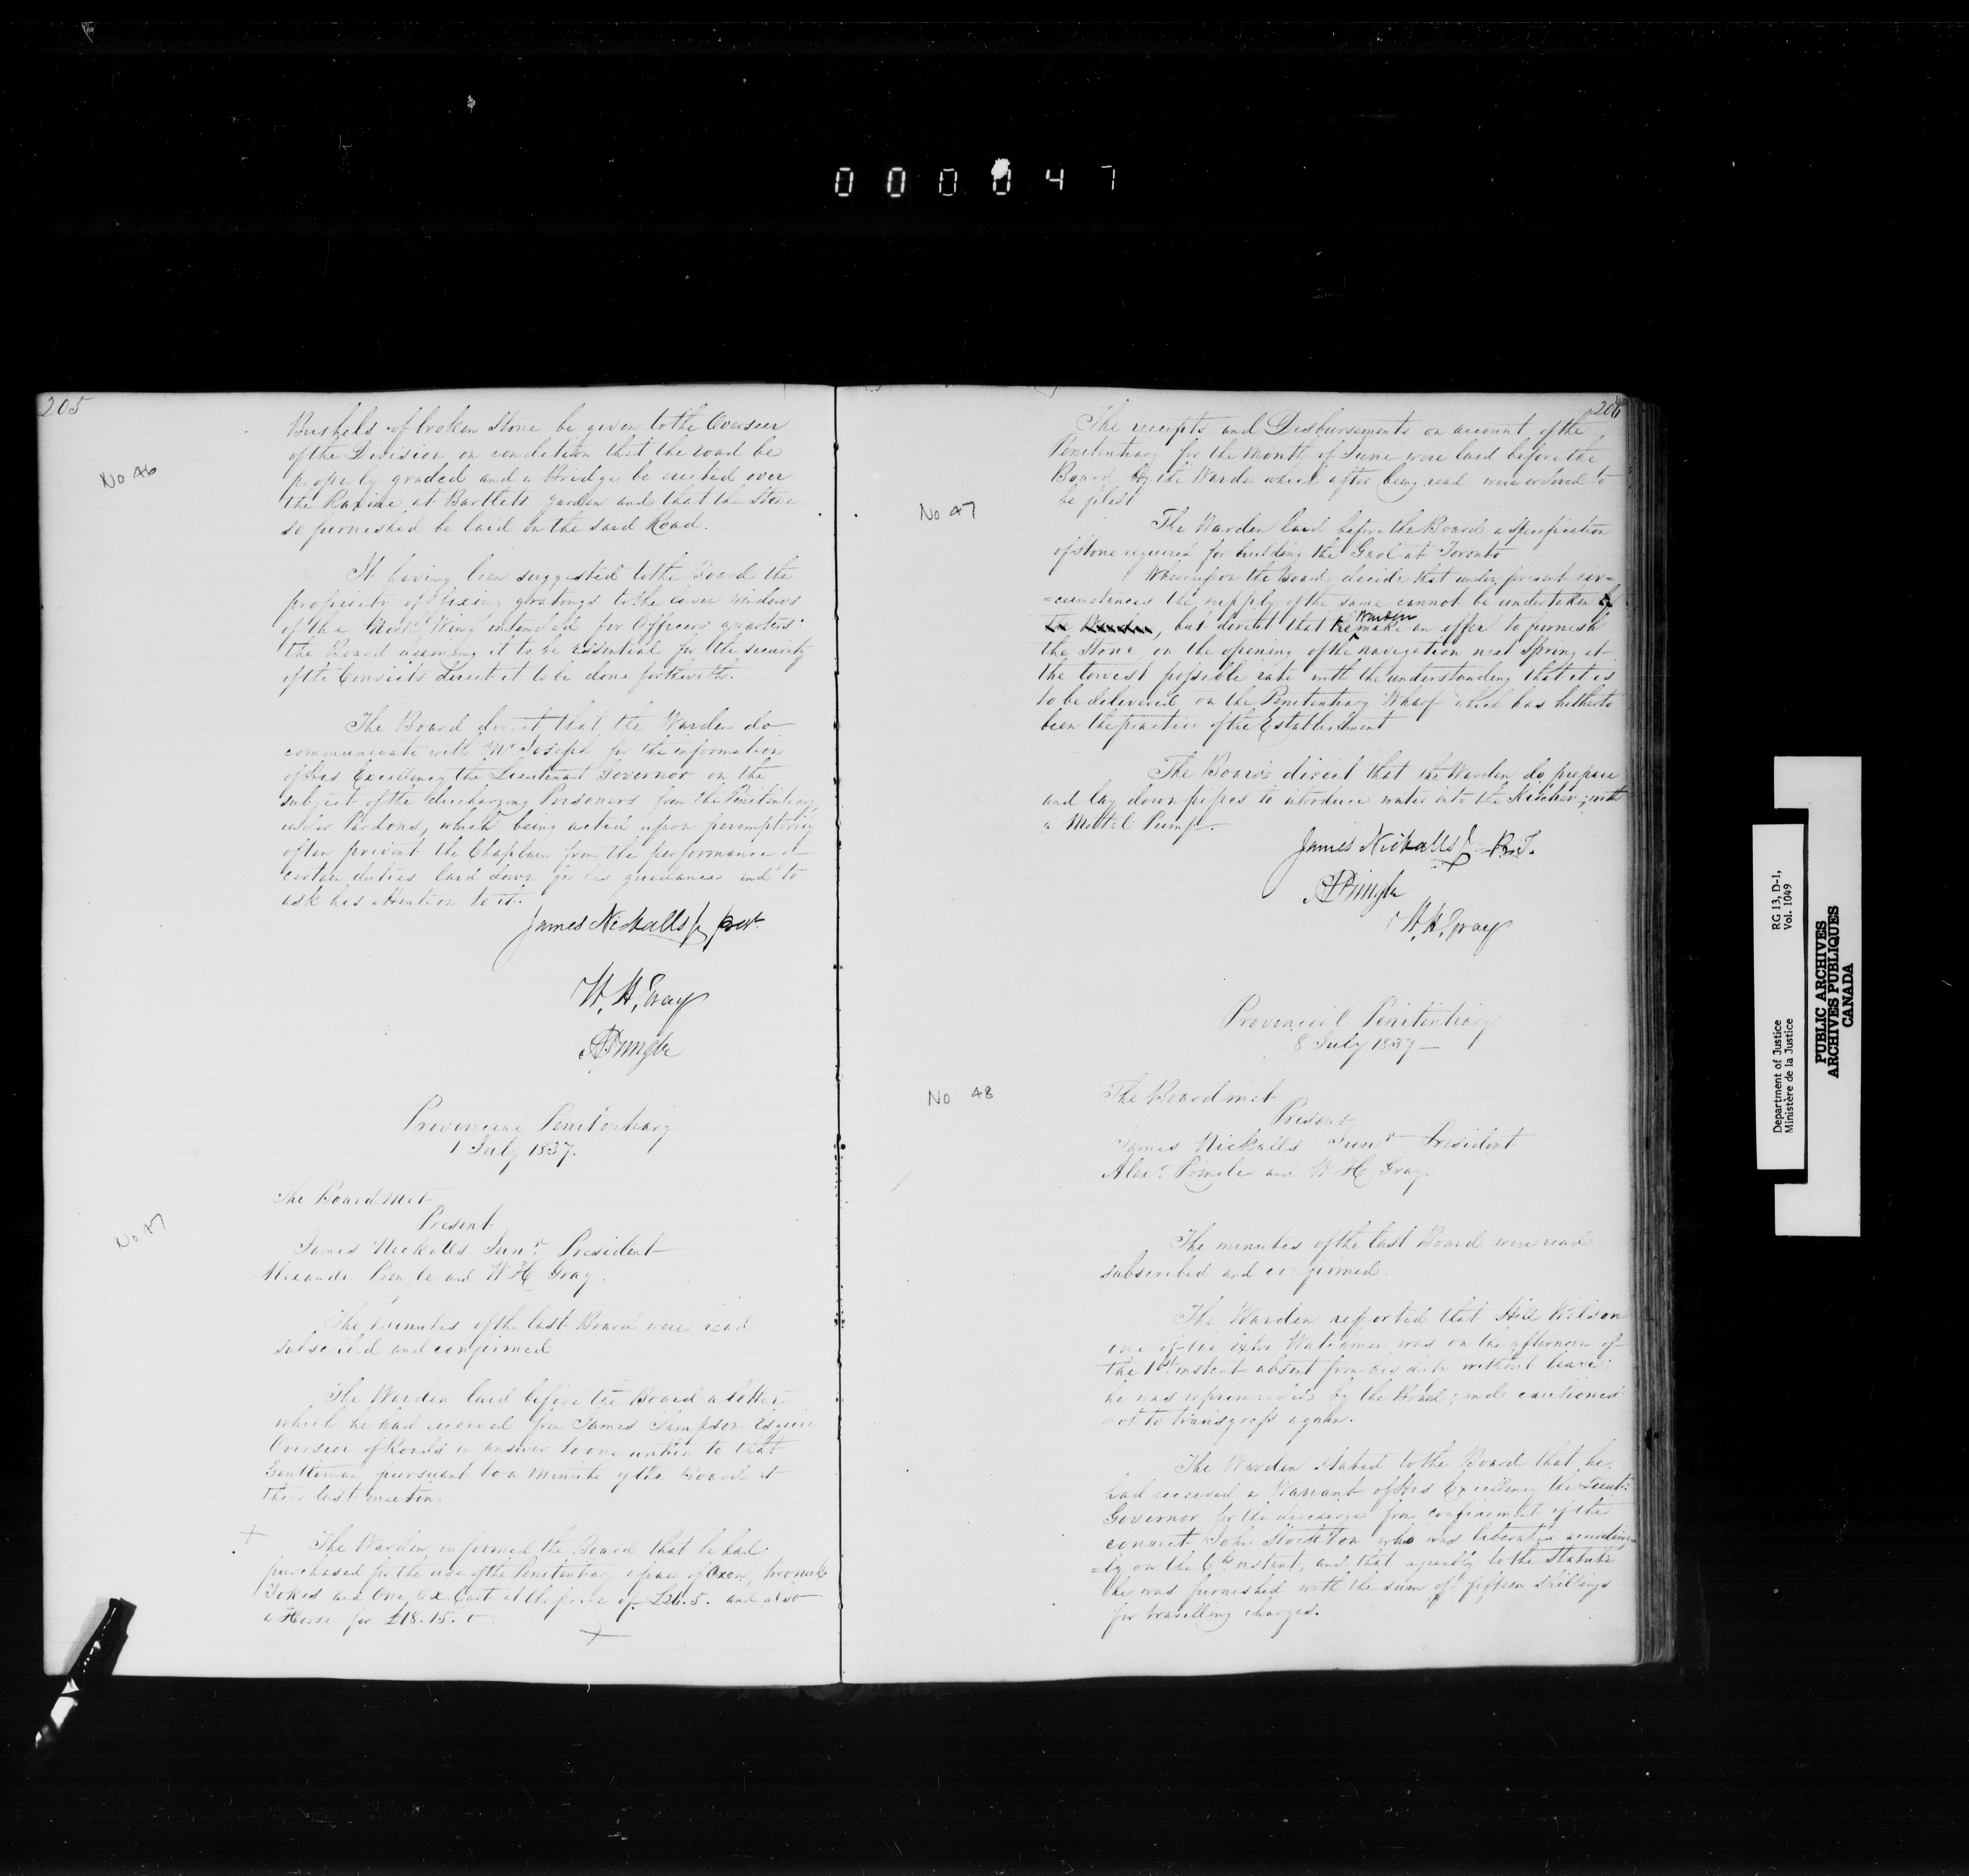 000047
205
No 46
Bushels of broken Stone be given to the Overseer
of the Division on condition that the road be
properly graded and a Bridge be erected over
the Ravine at Bartlets garden and that the Stone
so furnished be laid on the said Road.
It having been suggested to the Board the
propriety of fixing gratings to the lower windows
of the North Wing intended for Officers quarters:
the Board deeming it to be essential for the security
of the Convicts direct it to be done forthwith.
The Board direct that the Warden do
communicate with Mr Joseph for the information
of His Excellency the Lieutenant Governor on the
subject of the discharging Prisoners from the Penitentiary
under Pardons, which being acted upon peremptorily
often prevent the Chaplain from the performance of
certain duties laid down for his guidance and to
ask his attention to it.
James Nickalls Jr Prest.
W. H. Gray
A Pringle
Provincial Penitentiary
1 July 1837.
No 47
The Board met
Present
James Nickalls Junr. President
Alexander Pringle and W H Gray.
The minutes of the last Board were read
subscribed and confirmed
The Warden laid before the Board a letter
which he had received from James Sampson Esquire
Overseer of Roads in answer to one written to that
Gentleman pursuant to a Minute of the Board at
their last meeting
The Warden informed the Board that he had
purchased for the use of the Penitentiary 1 pair of Oxen, two
Yokes and One Ox Cart at the price of £26.5. and also
a Horse for £18.15.0
206
The receipts and Disbursements on account of the
Penitentiary for the Month of June were laid before the
Board by the Warden which after being read were ordered to
be filed
No 47
The Warden laid before the Board a Specification
of Stone required for building the Gaol at Toronto
Whereupon the Board decide that under present cir=
=cumstances the supply of the same cannot be undertaken by
the Warden, but direct that the Warden make an offer to furnish
the Stone on the opening of the navigation next Spring at
the lowest possible rate with the understanding that it is
to be delivered on the Penitentiary Wharf which has hitherto
been the practice of the Establishment
The Board direct that the Warden do prepare
and lay down pipes to introduce water into the Kitchen; with
a Mettal Pump.
James Nickalls Jr P.T.
A Pringle
W. H. Gray
Provincial Penitentiary
8 July 1837—
No 48
The Board met
Present
James Nickalls Junr President
Alexr. Pringle and W H Gray.
The minutes of the last Board were read
subscribed and confirmed.
The Warden reported that Hill Wilson
one of the extra Watchmen was on the afternoon of
the 1st instant absent from his duty without leave:
he was reprimanded by the Board; and cautioned
not to transgress again.
The Warden stated to the Board that he
had received a Warrant of His Excellency the Lieut:
Governor for the discharge from confinement of the
convict John Stockton who was liberated according=
=ly on the 6th instant, and that agreeably to the Statute
he was furnished with the sum of fifteen Shillings
for travelling charges.
Department of Justice
Ministère de la Justice
RG 13, D-1,
Vol. 1049
PUBLIC ARCHIVES
ARCHIVES PUBLIQUES
CANADA